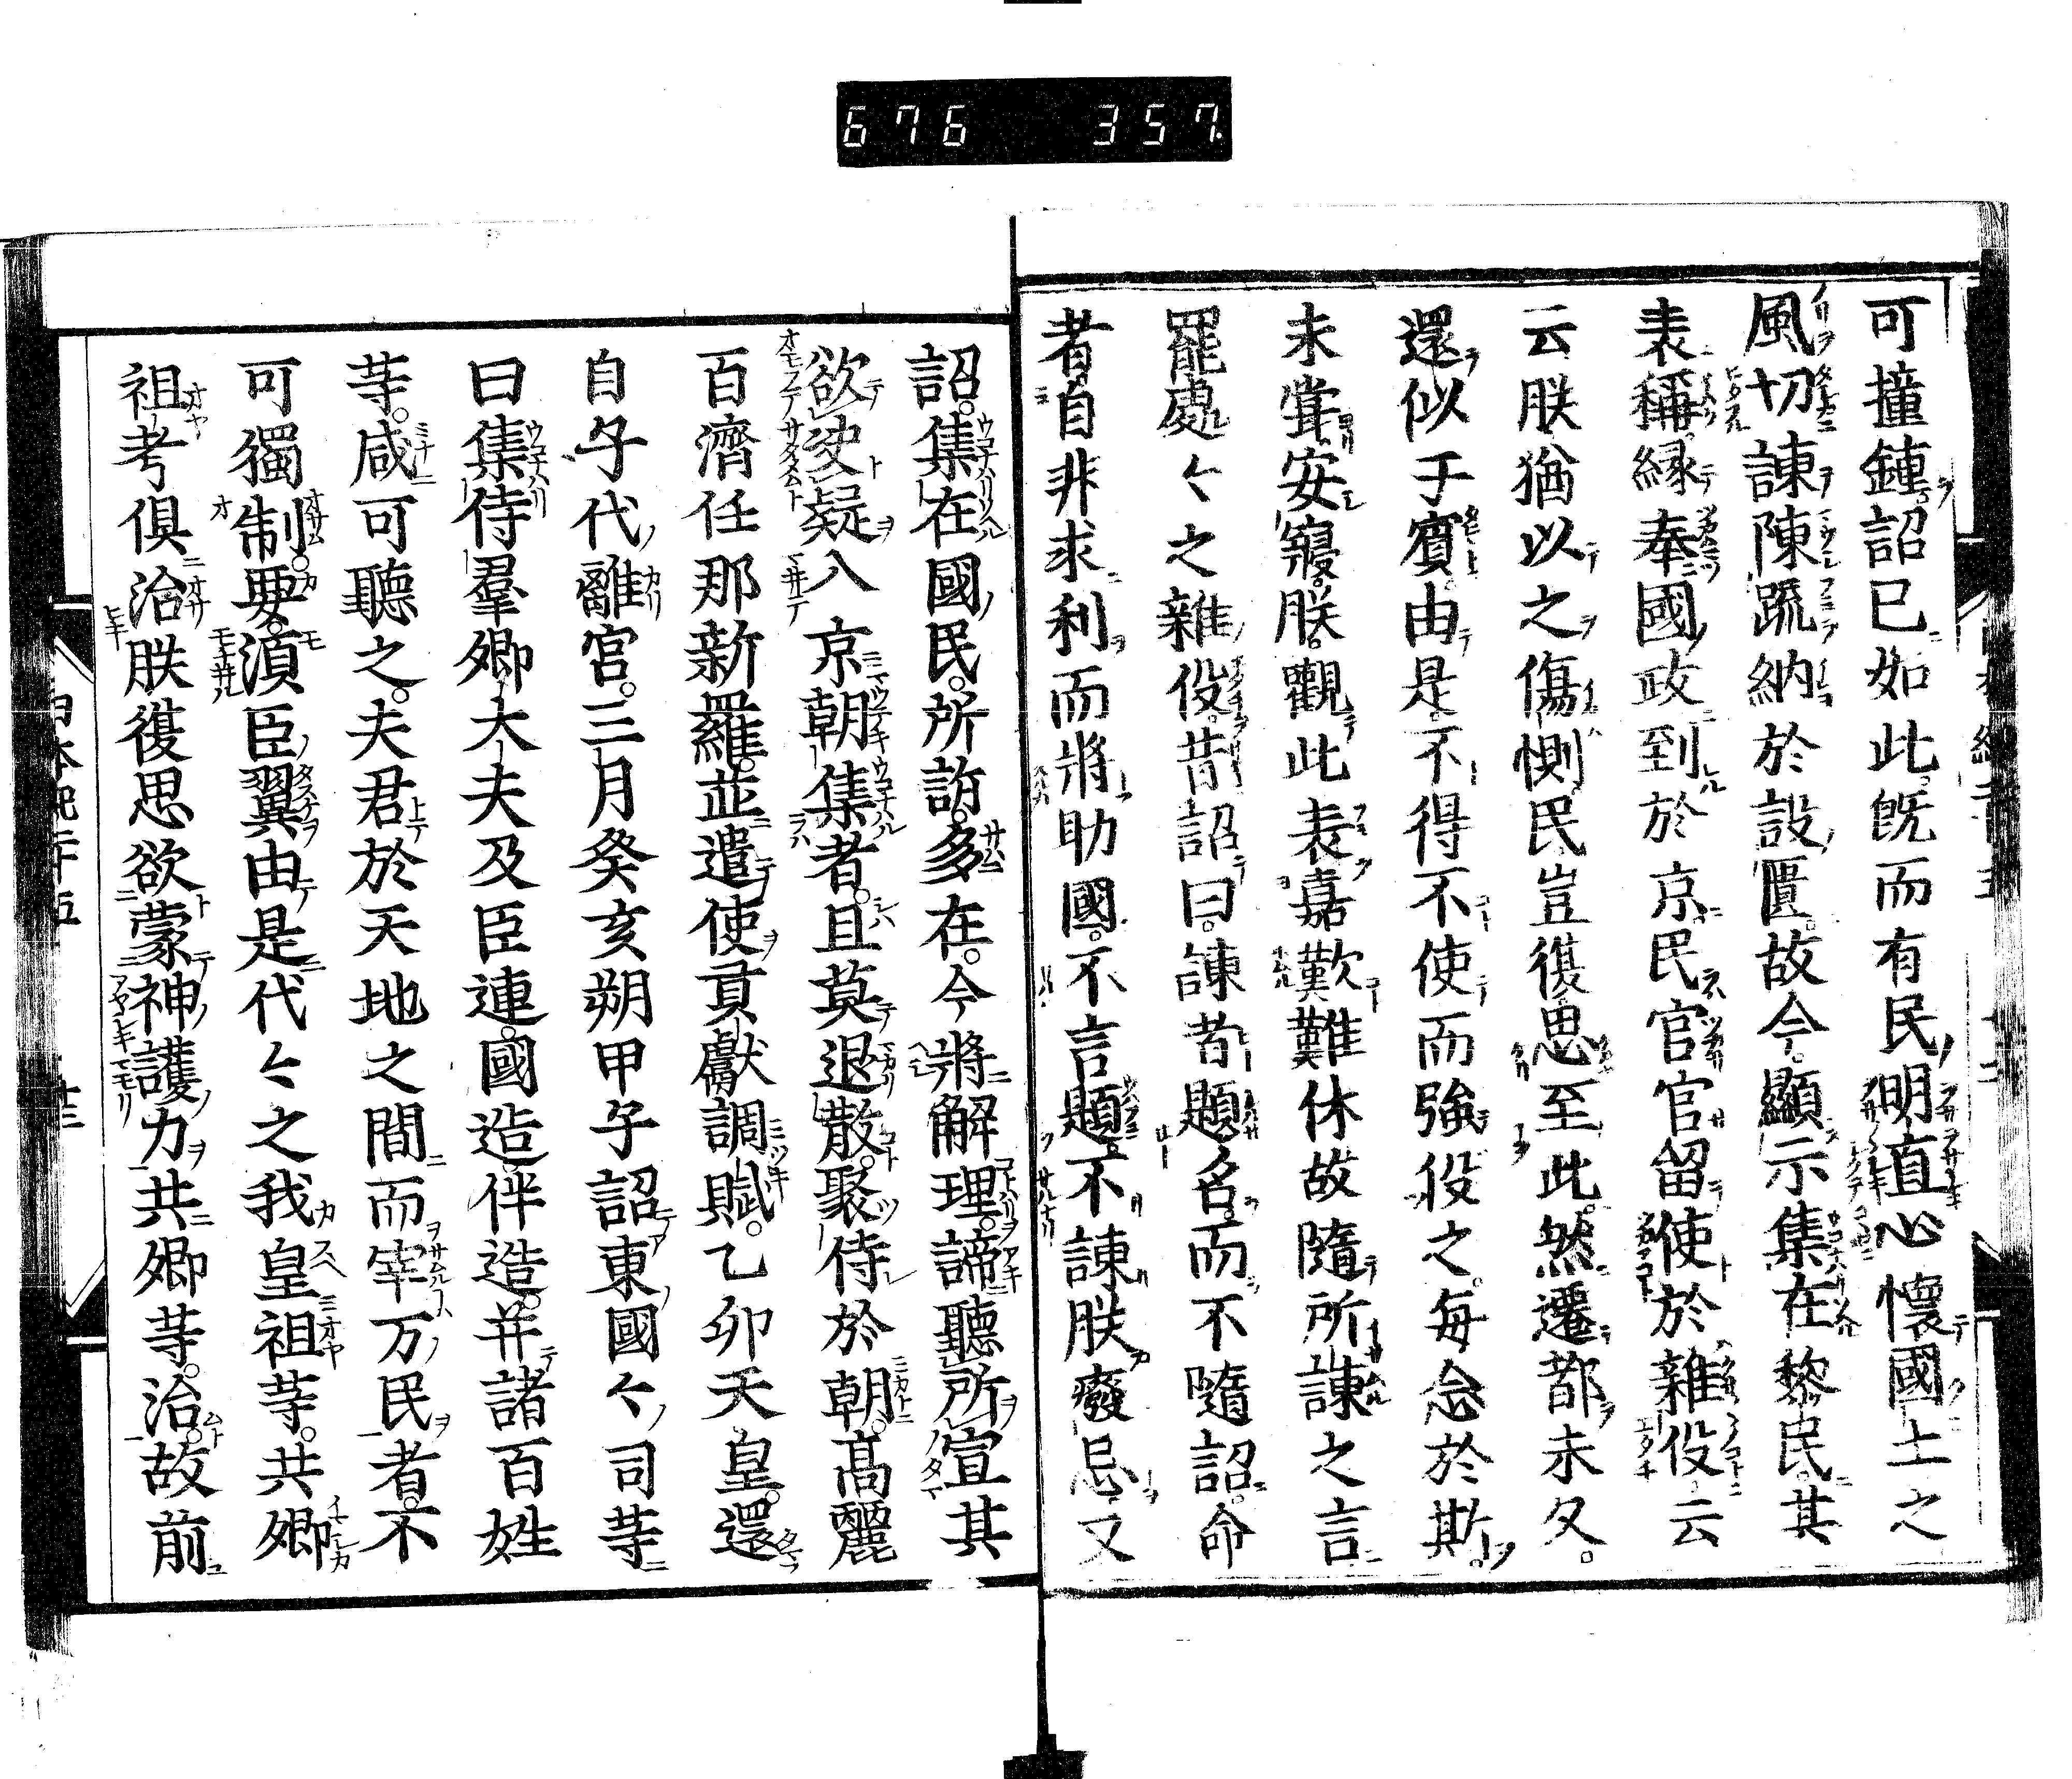 676 357
可撞鍾詔已如此既而有民明直心懷國土之
風切諫陳䟽納於設匱故今顯示集在黎民其
表稱縁奉國政到於京民官官留使於雜役云
云朕猶以之傷惻民豈復思至此然遷都未久
還似于賓由是不得不使而強役之每念於斯
未甞安寢朕觀此表嘉歎難休故隨所諫之言
罷處々之雜役昔詔曰諫者題名而不隨詔命
者自非求利而將助國不言題不諫朕癈忌又
詔集在國民所訴多在今將解理諦聽所宣其
欲决疑入京朝集者且莫退散聚侍於朝髙麗
百濟任那新羅並遣使貢獻調賦乙卯天皇還
自子代離宮三月癸亥朔甲子詔東國々司䓁
曰集侍羣卿大夫及臣連國造伴造并諸百姓
䓁咸可聽之夫君於天地之間而宰万民者不
可獨制要湏臣翼由是代々之我皇祖䓁共卿
祖考俱治朕復思欲蒙神護力共卿䓁治故前
日本紀二十五